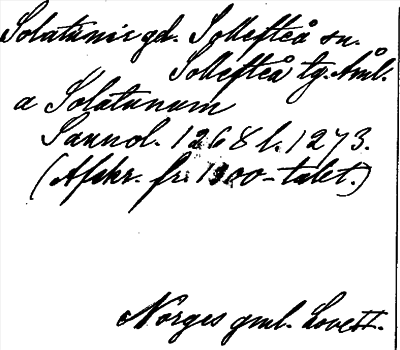 Solatunir gd. Sollefteå sn.
Sollefteå tg. Åml.
a Solatunum
Sannol. 1268 l. 1273.
(Afskr. fr. 1300-talet.)
Norges gml. Lovett.